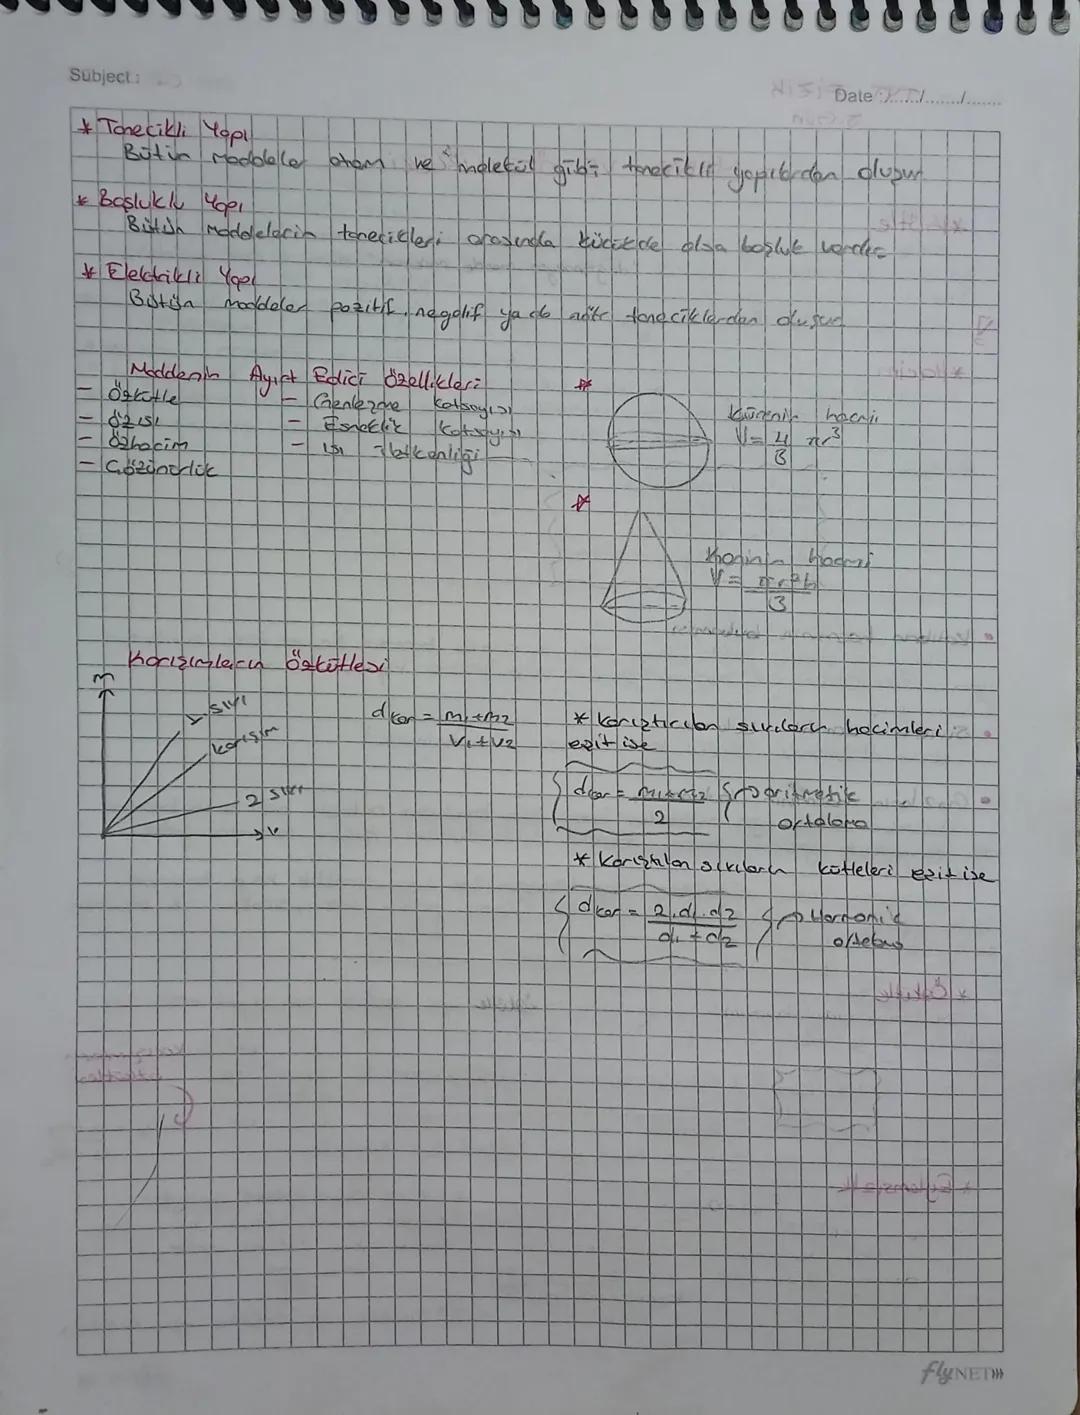 Subject:
Date :....../......./.......
* Tanecikli Yapı
Bütün maddeler atom ve molekül gibi tanecikli yapılardan oluşur
* Boşluklu Yapı
Bütün maddelerin tanecikleri arasında küçükde olsa boşluk vardır
* Elektrikli Yapı
Bütün maddeler pozitif, negatif ya da nötr taneciklerden oluşur
Maddenin Ayırt Edici Özellikleri
- Özkütle
- Özısı
- Özhacim
- Çözünürlük
- Genleşme katsayısı
- Esneklik katsayısı
- ısı iletkenliği
* Kürenin hacmi
V = 4/3 πr³
* Koninin hacmi
V = πr²h/3
Karışımların Özkütlesi
m
sıvı
karışım
2 sıvı
V
dkar = m1+m2 / V1+V2
* Karıştırılan sıvıların hacimleri
eşit ise
dkar = m1+m2 / 2 → aritmetik
ortalama
* Karıştırılan sıvıların kütleleri eşit ise
dkar = 2.d1.d2 / d1+d2 → Harmonik
flyNET